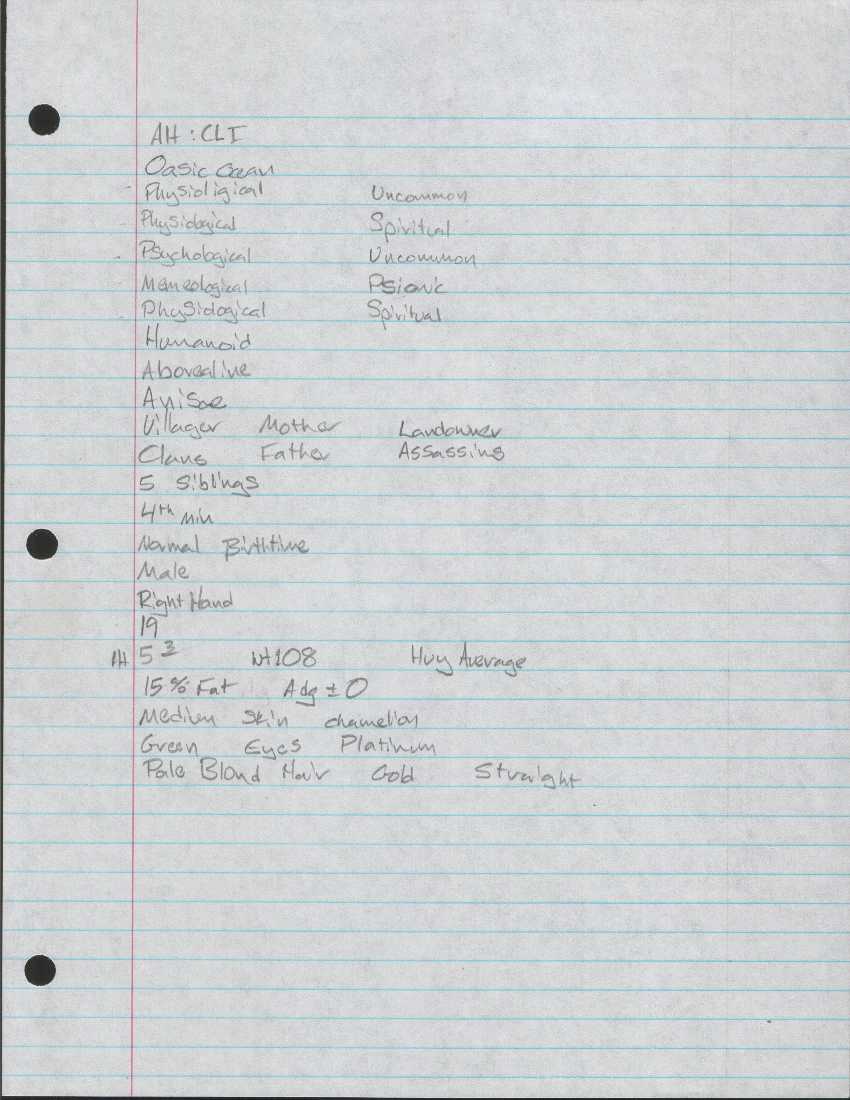 AH : CLI
Oasic Ocean
Physioligical Uncommon
Physiological Spiritual
Psychological Uncommon
Memeological Psionic
Physiological Spiritual
Humanoid
Aborealine
Villager Mother Landowner
Clans Father Assassins
5 Siblings
4th Min
Normal Birthtime
Male
Right Hand
19
5 3 Wt 108 Hvy Average
15% Fat Adg ± 0
Medium Skin chamelion
Green Eyes Platinum
Pale Blond Hair Gold Straight